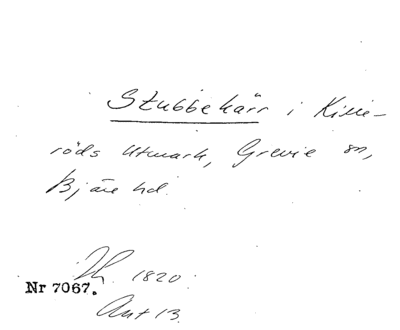 Stubbekärr i Kille-
röds utmark, Grevie sn,
Bjäre hd.
1820.
Nr 7067.
Ant 13.